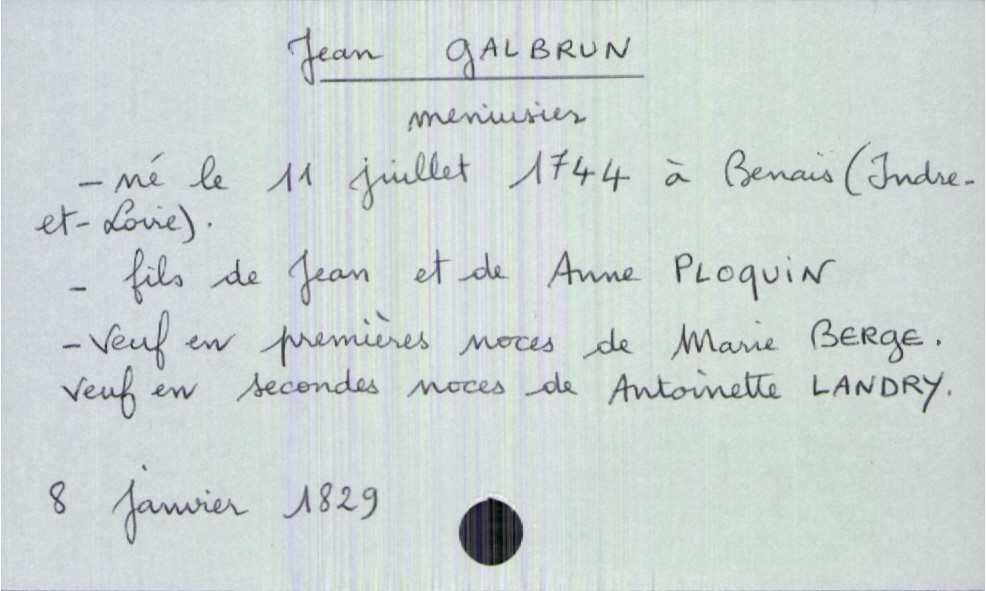 Jean GALBRUN
menuisier
- né le 11 juillet 1744 à Benais (Indre-
et-Loire).
- fils de Jean et de Anne PLOQUIN
- Veuf en premières noces de Marie BERGE.
Veuf en secondes noces de Antoinette LANDRY.
8 janvier 1829